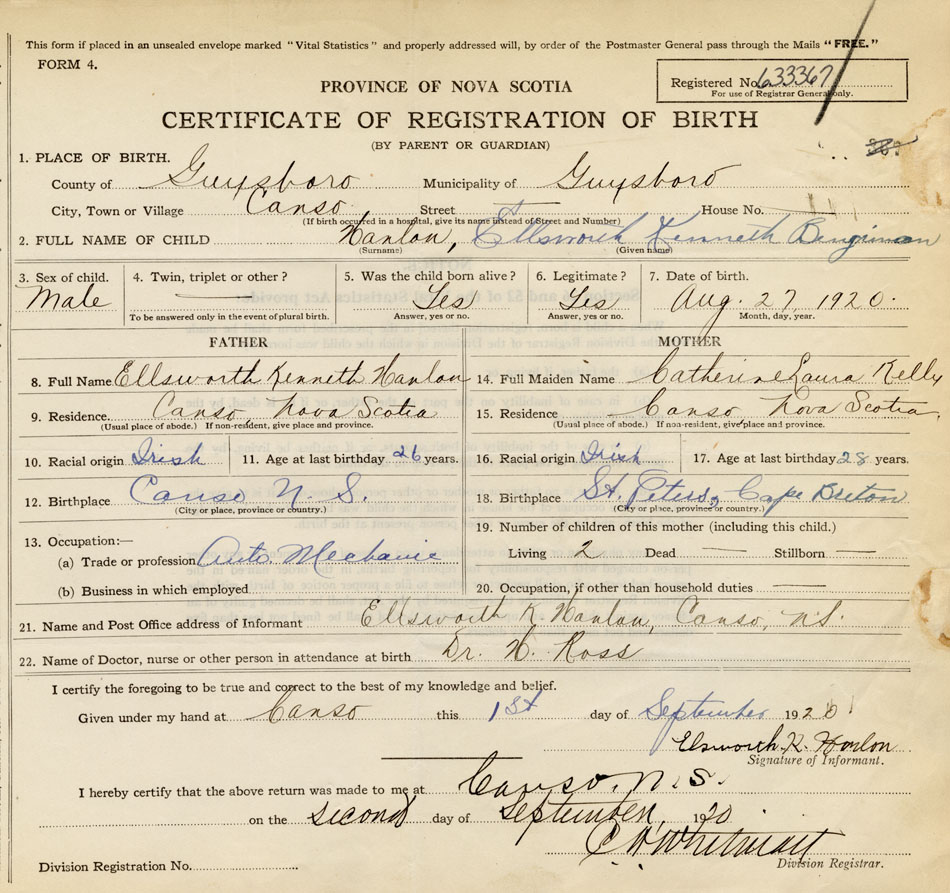 This form if placed in an unsealed envelope marked "Vital Statistics" and properly addressed will, by order of the Postmaster General pass through the Mails "FREE."
FORM 4.
Registered No. 633367
For use of Registrar General only.
PROVINCE OF NOVA SCOTIA
CERTIFICATE OF REGISTRATION OF BIRTH
(BY PARENT OR GUARDIAN)
1. PLACE OF BIRTH.
County of Guysboro Municipality of Guysboro
City, Town or Village Canso Street House No.
(If birth occurred in a hospital, give its name instead of Street and Number)
2. FULL NAME OF CHILD Hanlon, Ellsworth Kenneth Bengiman
(Surname) (Given name)
3. Sex of child. 4. Twin, triplet or other? 5. Was the child born alive? 6. Legitimate? 7. Date of birth.
Male Yes Yes Aug. 27, 1920.
To be answered only in the event of plural birth. Answer, yes or no. Answer, yes or no. Month, day, year.
FATHER MOTHER
8. Full Name Ellsworth Kenneth Hanlon 14. Full Maiden Name Catherine Laura Kelly
9. Residence. Canso Nova Scotia 15. Residence Canso Nova Scotia,
(Usual place of abode.) If non-resident, give place and province. (Usual place of abode.) If non-resident, give place and province.
10. Racial origin Irish 11. Age at last birthday 26 years. 16. Racial origin Irish 17. Age at last birthday 28 years.
12. Birthplace Canso N. S. 18. Birthplace St. Peters, Cape Breton
(City or place, province or country.) (City or place, province or country.)
13. Occupation:— 19. Number of children of this mother (including this child.)
(a) Trade or profession Auto Mechanic Living 2 Dead — Stillborn —
(b) Business in which employed 20. Occupation, if other than household duties —
21. Name and Post Office address of Informant Ellsworth K Hanlon, Canso, N.S.
22. Name of Doctor, nurse or other person in attendance at birth Dr. H. Ross
I certify the foregoing to be true and correct to the best of my knowledge and belief.
Given under my hand at Canso this 1st day of September 1920
Elsworth. K. Hanlon
Signature of Informant.
I hereby certify that the above return was made to me at Canso. N. S.
on the second day of September, 1920
C. H. Whitman
Division Registration No. Division Registrar.